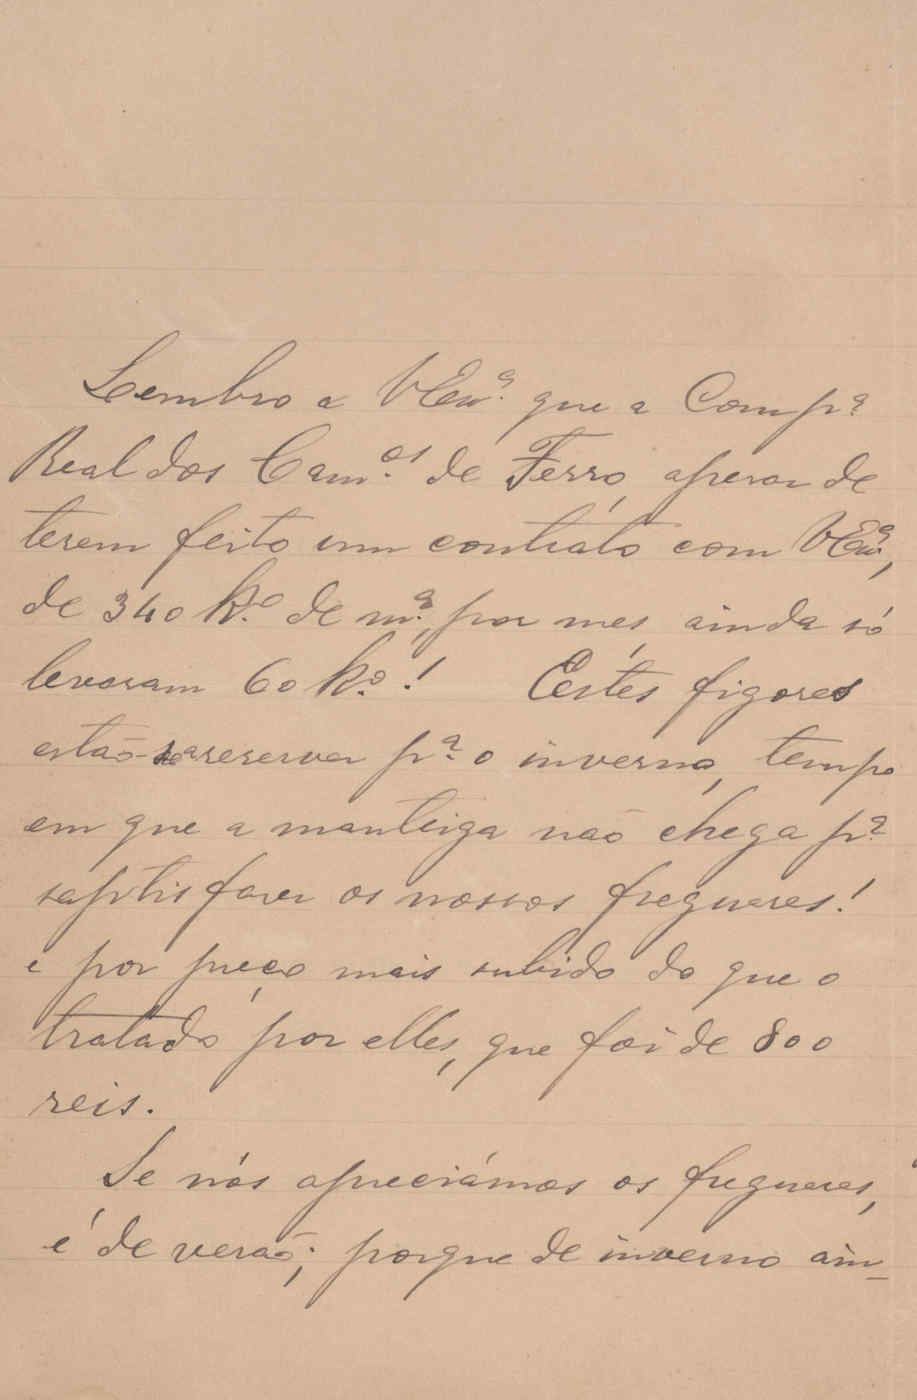 Lembro a V Ex.ª que a Compª
Real dos Cam.os de Ferro, apesar de
terem feito um contrato com V Ex.ª,
de 340 K.º de m.ª, por mes, ainda só
levaram 60 k.º! Estes figores
estão-se a reservar pª o inverno, tempo
em que a manteiga não chega pª
saptisfazer os nossos freguezes!
e por preço mais subido do que o
tratado por elles, que foi de 800
reis.
Se nós apreciámos os freguezes,
é de verão; porque de inverno ain-